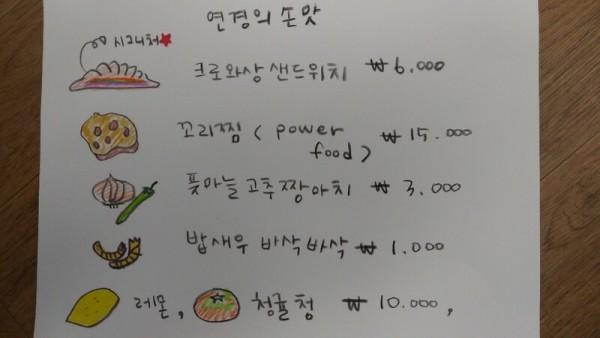 연경의 손맛
시그니처
크로와상 샌드위치 ₩ 6.000
꼬리찜 ( power food ) ₩ 15.000
풋마늘 고추짱아치 ₩ 3.000
밥새우 바삭바삭 ₩ 1.000
레몬, 청귤청 ₩ 10.000,